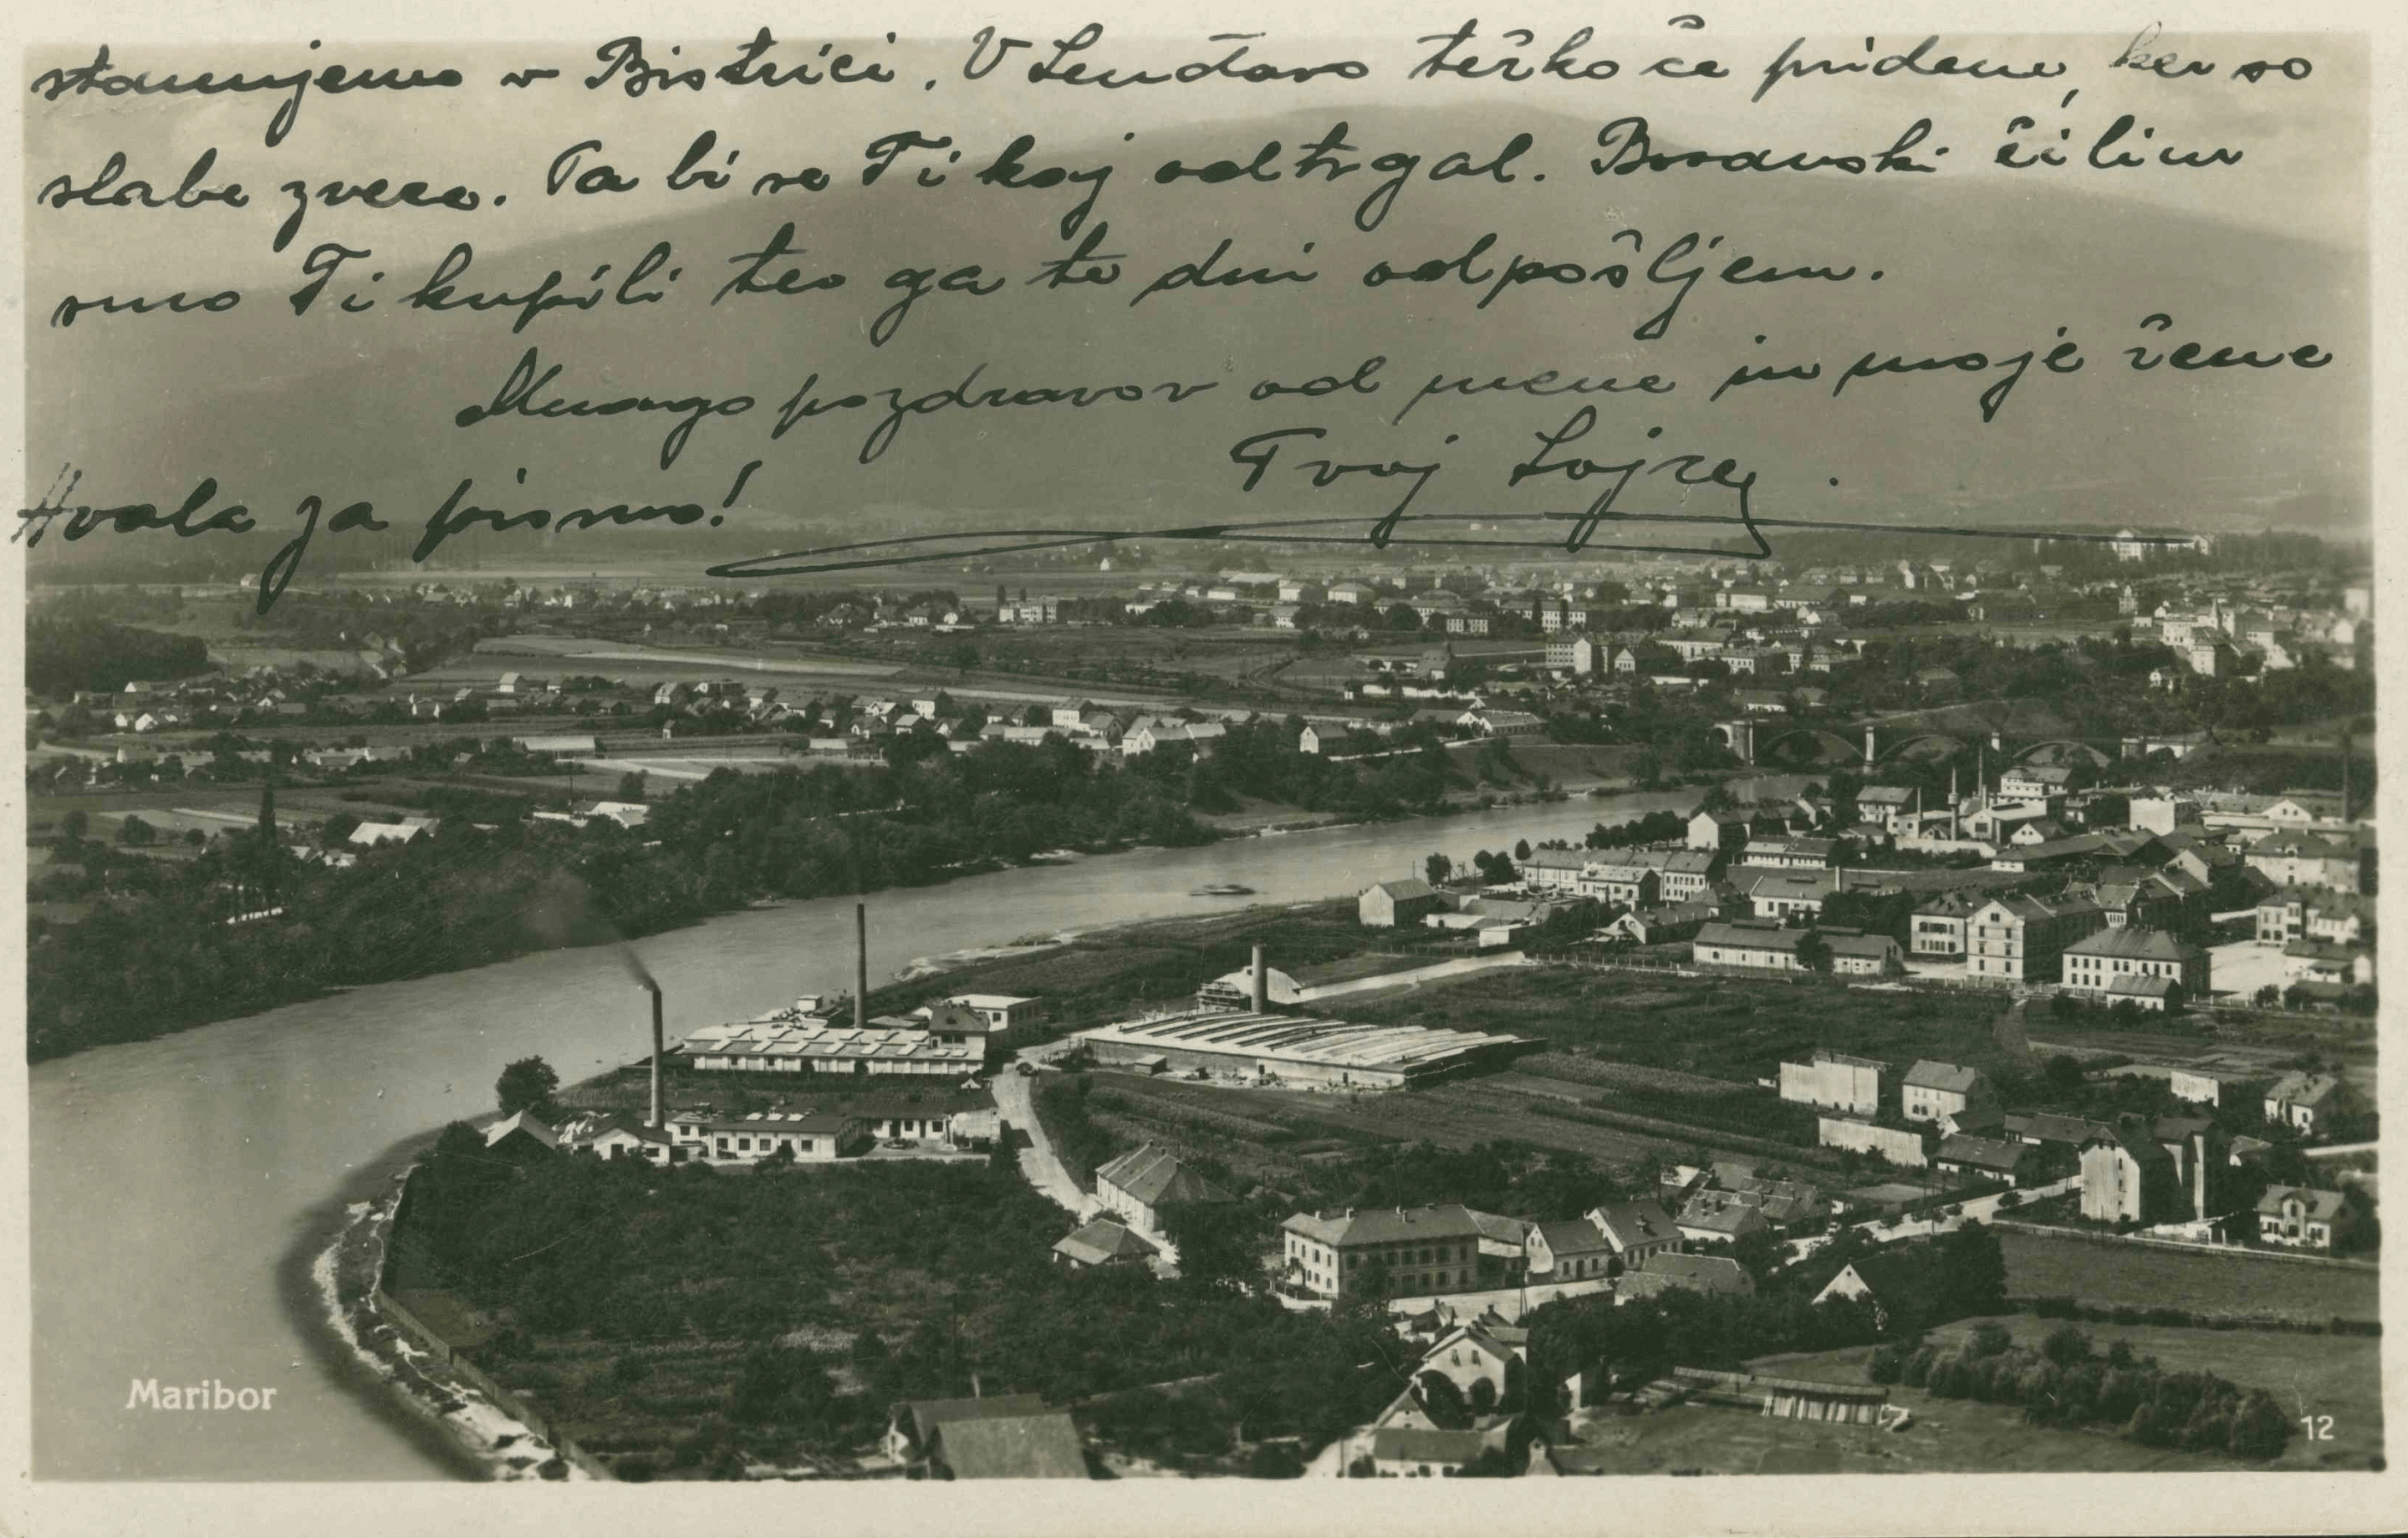 stanujemo v Bistrici. V Lendavo težko če pridem, ker so
slabe zveze. Pa bi se Ti kaj odtrgal. Bosanski čilim
smo Ti kupili ter ga te dni odpošljem.
Mnogo pozdravov od mene in moje žene
Tvoj Lojze.
Hvala za pismo!
Maribor
12